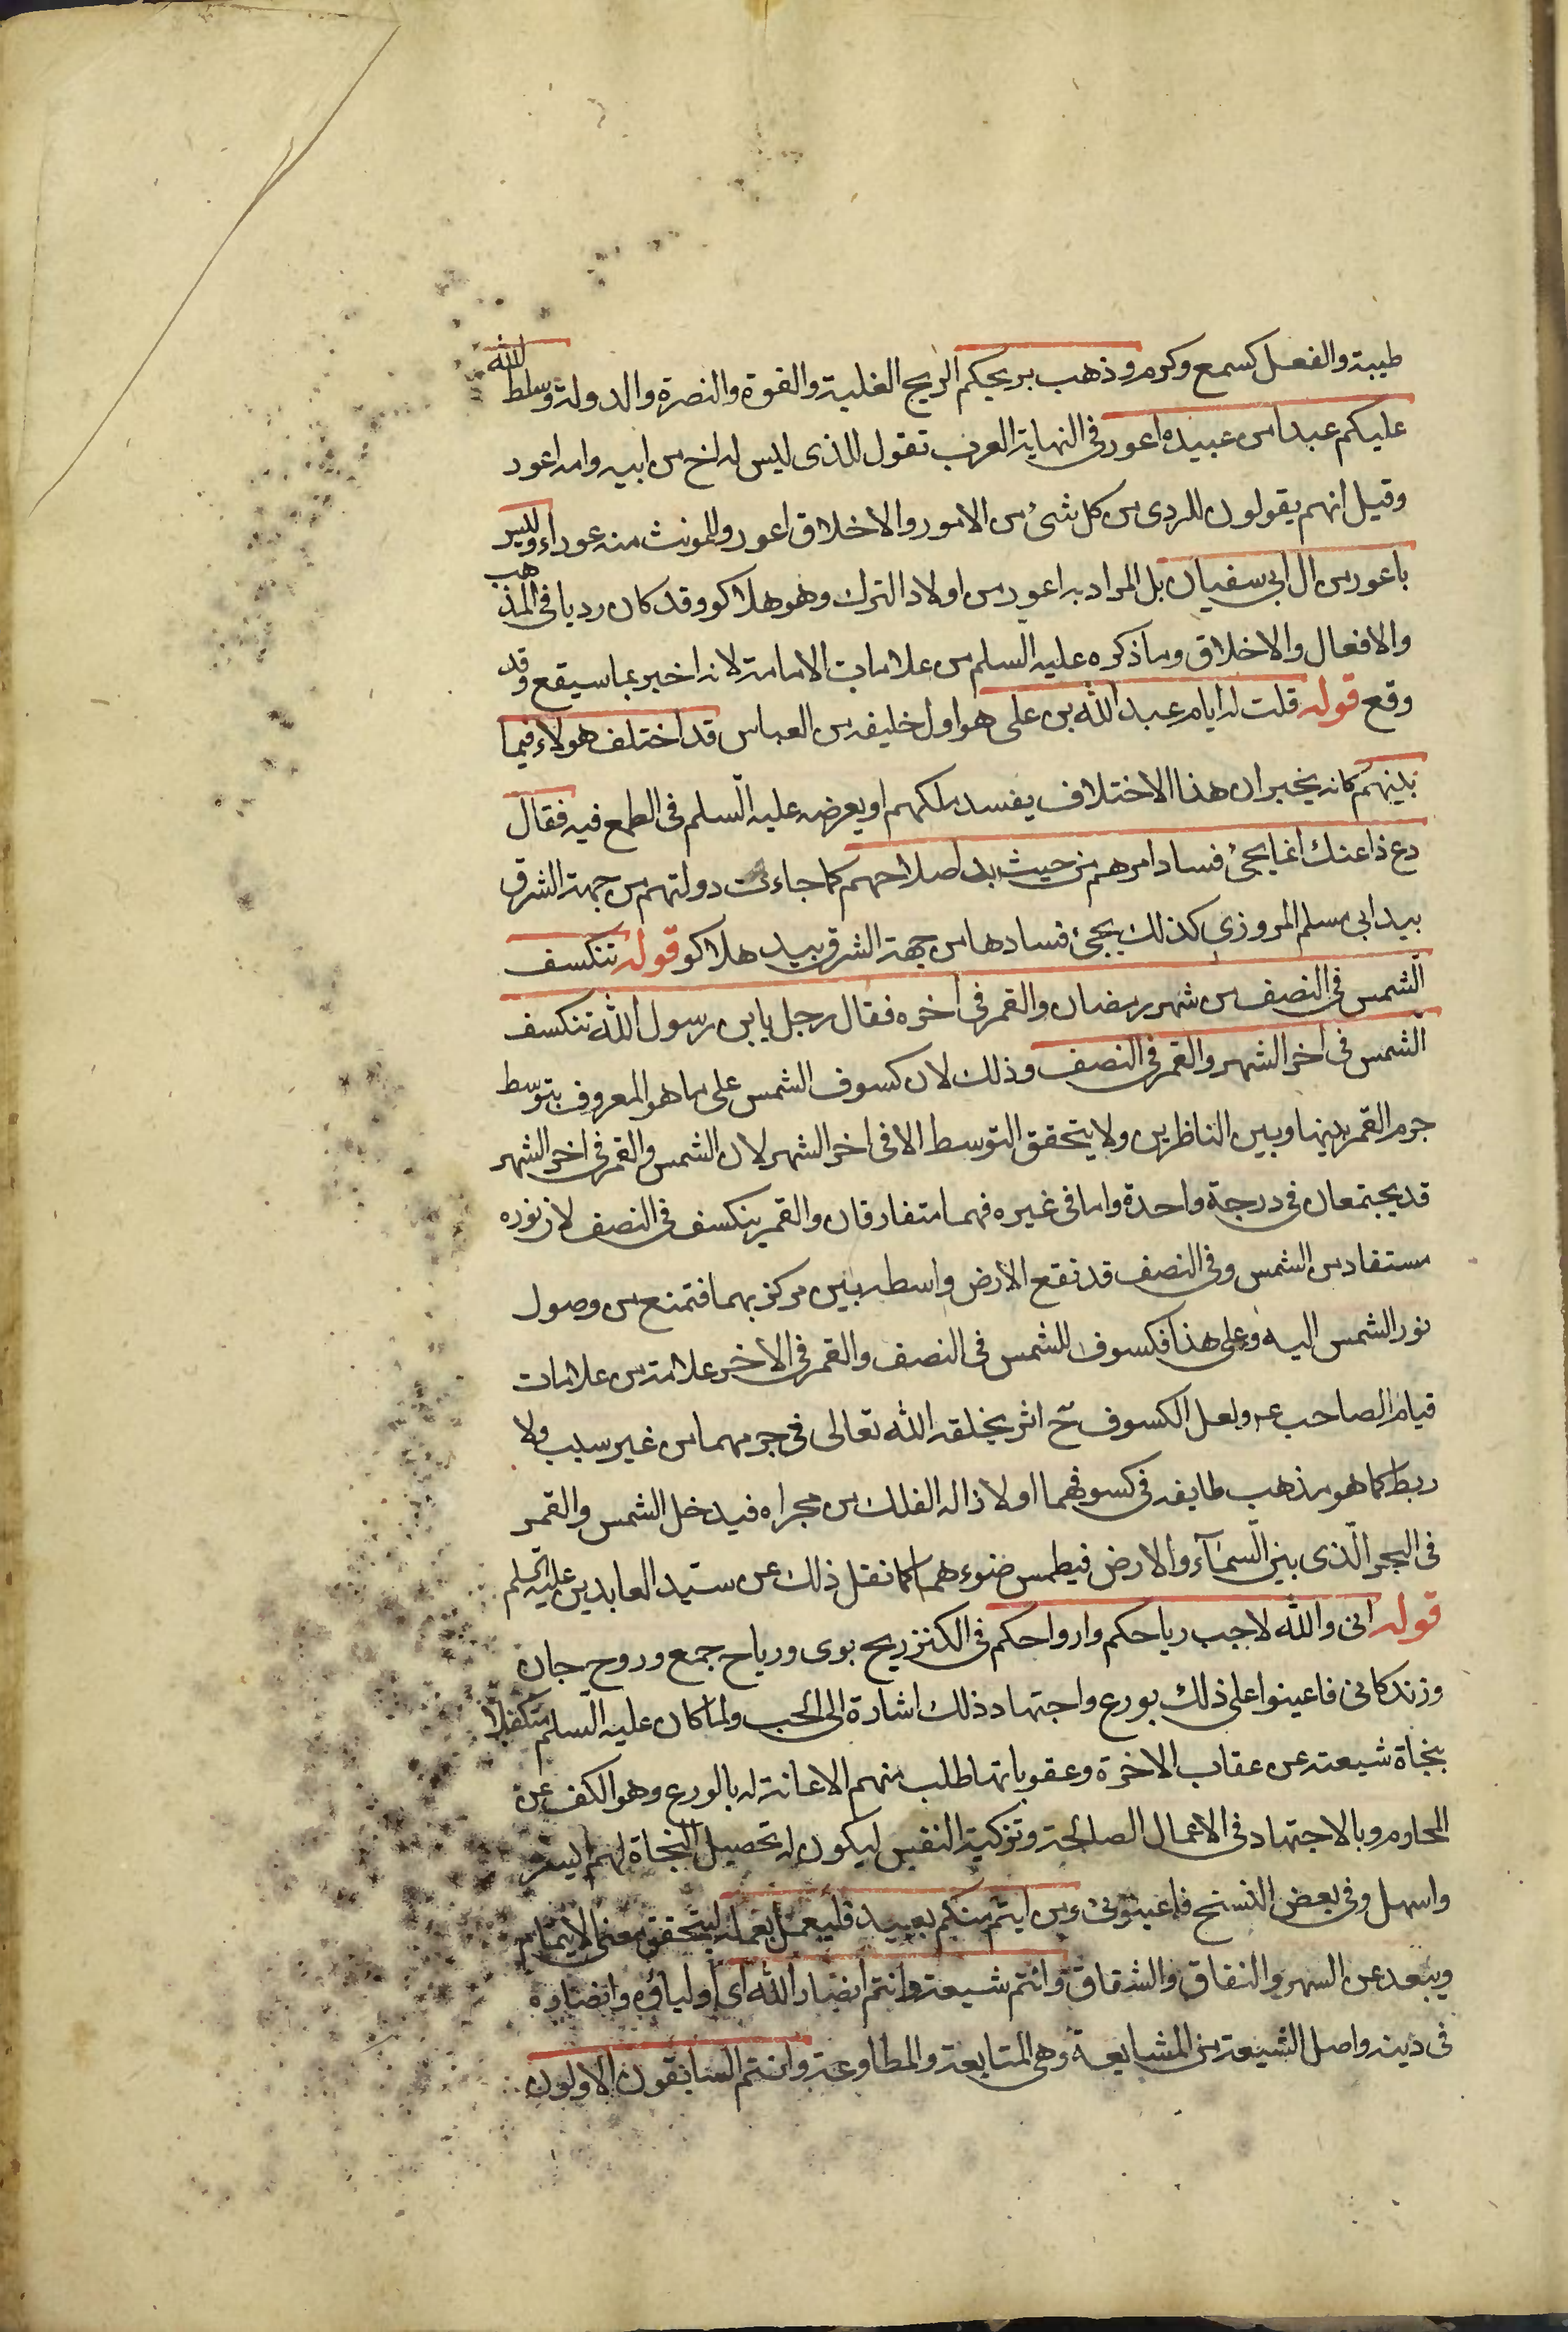 طيبة والفعل كسمع وكرم وذهب بريحكم الريح الغلبة والقوة والنصرة والدولة وسلط الله
عليكم عبدا من عبيده اعور فى النهاية العرب تقول للذى ليس له اخ من ابيه وامه اعور
وقيل انهم يقولون للردى من كل شئ من الامور والاخلاق اعور وللمونث منه عوراء وليس
باعور من ال ابى سفيان بل المراد به اعور من اولاد الترك وهو هلاكو وقد كان رديا فى المذهب
والافعال والاخلاق وما ذكره عليه السلم من علامات الامامة لانه اخبر بما سيقع وقد
وقع قوله قلت له ايام عبد الله بن على هو اول خليفه من العباس قد اختلف هولاء فيما
بينهم كانه يخبر ان هذا الاختلاف يفسد ملكهم او يعرضه عليه السلم فى الطمع فيه فقال
دع ذا عنك انما يجئ فساد امرهم من حيث بدا صلاحهم كما جاءت دولتهم من جهة الشرق
بيد ابى مسلم المروزى كذلك يجئ فسادها من جهة الشرق بيد هلاكو قوله تنكسف
الشمس فى النصف من شهر رمضان والقمر فى اخره فقال رجل يا بن رسول الله تنكسف
الشمس فى اخر الشهر والقمر فى النصف وذلك لان كسوف الشمس على ما هو المعروف بتوسط
جرم القمر بينها وبين الناظرين ولا يتحقق التوسط الا فى اخر الشهر لان الشمس والقمر فى اخر الشهر
قد يجتمعان فى درجة واحدة واما فى غيره فهما متفارقان والقمر ينكسف فى النصف لان نوره
مستفاد من الشمس وفى النصف قد تقع الارض واسطه بين مركزيهما فتمنع من وصول
نور الشمس اليه وعلى هذا فكسوف الشمس فى النصف والقمر فى الاخر علامة من علامات
قيام الصاحب عه ولعل الكسوف ح اثر يخلقه الله تعالى فى جرمهما من غير سبب ولا
ربط كما هو مذهب طايفه فى كسوفهما او لا زاله الفلك من مجراه فيدخل الشمس والقمر
فى البحر الّذى بين السّمآء والارض فيطمس ضوءهما كما نقل ذلك عن سيّد العابدين عليه السلم
قوله انى والله لاحب رياحكم وارواحكم فى الكنز ريح بوى ورياح جمع وروح جان
وزندكانى فاعينوا على ذلك بورع واجتهاد ذلك اشارة الى الحب ولما كان عليه السّلم متكفلا
بنجاة شيعته عن عقاب الاخرة وعقوباتها طلب منهم الاعانة له بالورع وهو الكف عن
المحارم وبالاجتهاد فى الاعمال الصالحة وتزكية النفس ليكون له تحصيل النجاة لهم ايسر
واسهل وفى بعض النسخ فاعينونى ومن ايتم منكم بعبد فليعمل بعمله ليتحقق معنى الايتمام
ويبعد عن السهو والنفاق والشقاق وانتم شيعة وانتم انصار الله اى اولياؤه وانصاره
فى دينه واصل الشيعة من المشايعة وهى المتابعة والمطاوعة وانتم السابقون الاولون